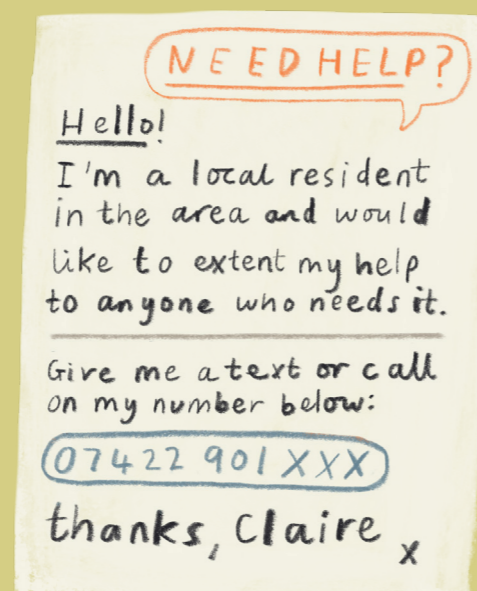 NEED HELP?
Hello!
I'm a local resident
in the area and would
like to extent my help
to anyone who needs it.
Give me a text or call
on my number below:
07422 901 XXX
thanks, Claire x